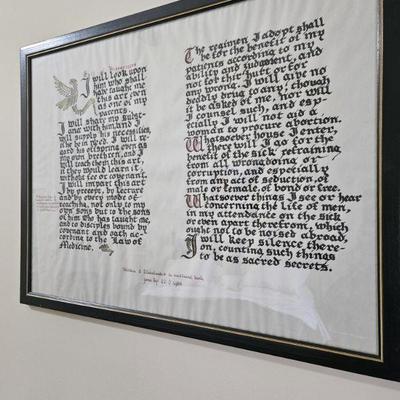 I will look upon
him who shall
have taught me
this art even
as one of my
parents.
I will share my subst-
ance with him and I
will supply his necessities,
if he be in need. I will re-
gard his offspring even as
my own brethren, and I
will teach them this art,
if they would learn it,
without fee or covenant.
I will impart this art
by precept, by lecture
and by every mode of
teaching, not only to my
own sons but to the sons
of him who has taught me,
and to disciples bound by
covenant and oath, ac-
cording to the Law of
Medicine.
The regimen I adopt shall
be for the benefit of my
patients according to my
ability and judgment, and
not for their hurt or for
any wrong. I will give no
deadly drug to any, though
it be asked of me, nor will
I counsel such, and esp-
ecially I will not aid a
woman to procure abortion.
Whatsoever house I enter,
there will I go for the
benefit of the sick, refraining
from all wrongdoing or
corruption, and especially
from any act of seduction, of
male or female, of bond or free.
Whatsoever things I see or hear
concerning the life of men,
in my attendance on the sick
or even apart therefrom, which
ought not to be noised abroad,
I will keep silence there-
on, counting such things
to be as sacred secrets.